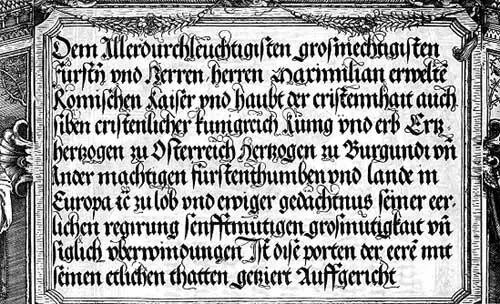 Dem Allerdurchleuchtigisten großmechtigisten
Fürstn vnd Herren herren Maximilian erweltē
Romischen Kaiser vnd haubt der cristennhait auch
siben cristenlicher kunigreich Kunig vnd erb Ertz-
hertzogen zu Osterreich Hertzogen zu Burgundi vñ
Ander machtigen fürstenthumben vnd lande in
Europa ꝛc̄ zu lob vnd ewiger gedächtnus seiner eer-
lichen regirung senfftmutigen großmutigkait vñ
siglich vberwindungen Ist dise porten der eerē mit
seinen etlichen thatten getziert Auffgericht